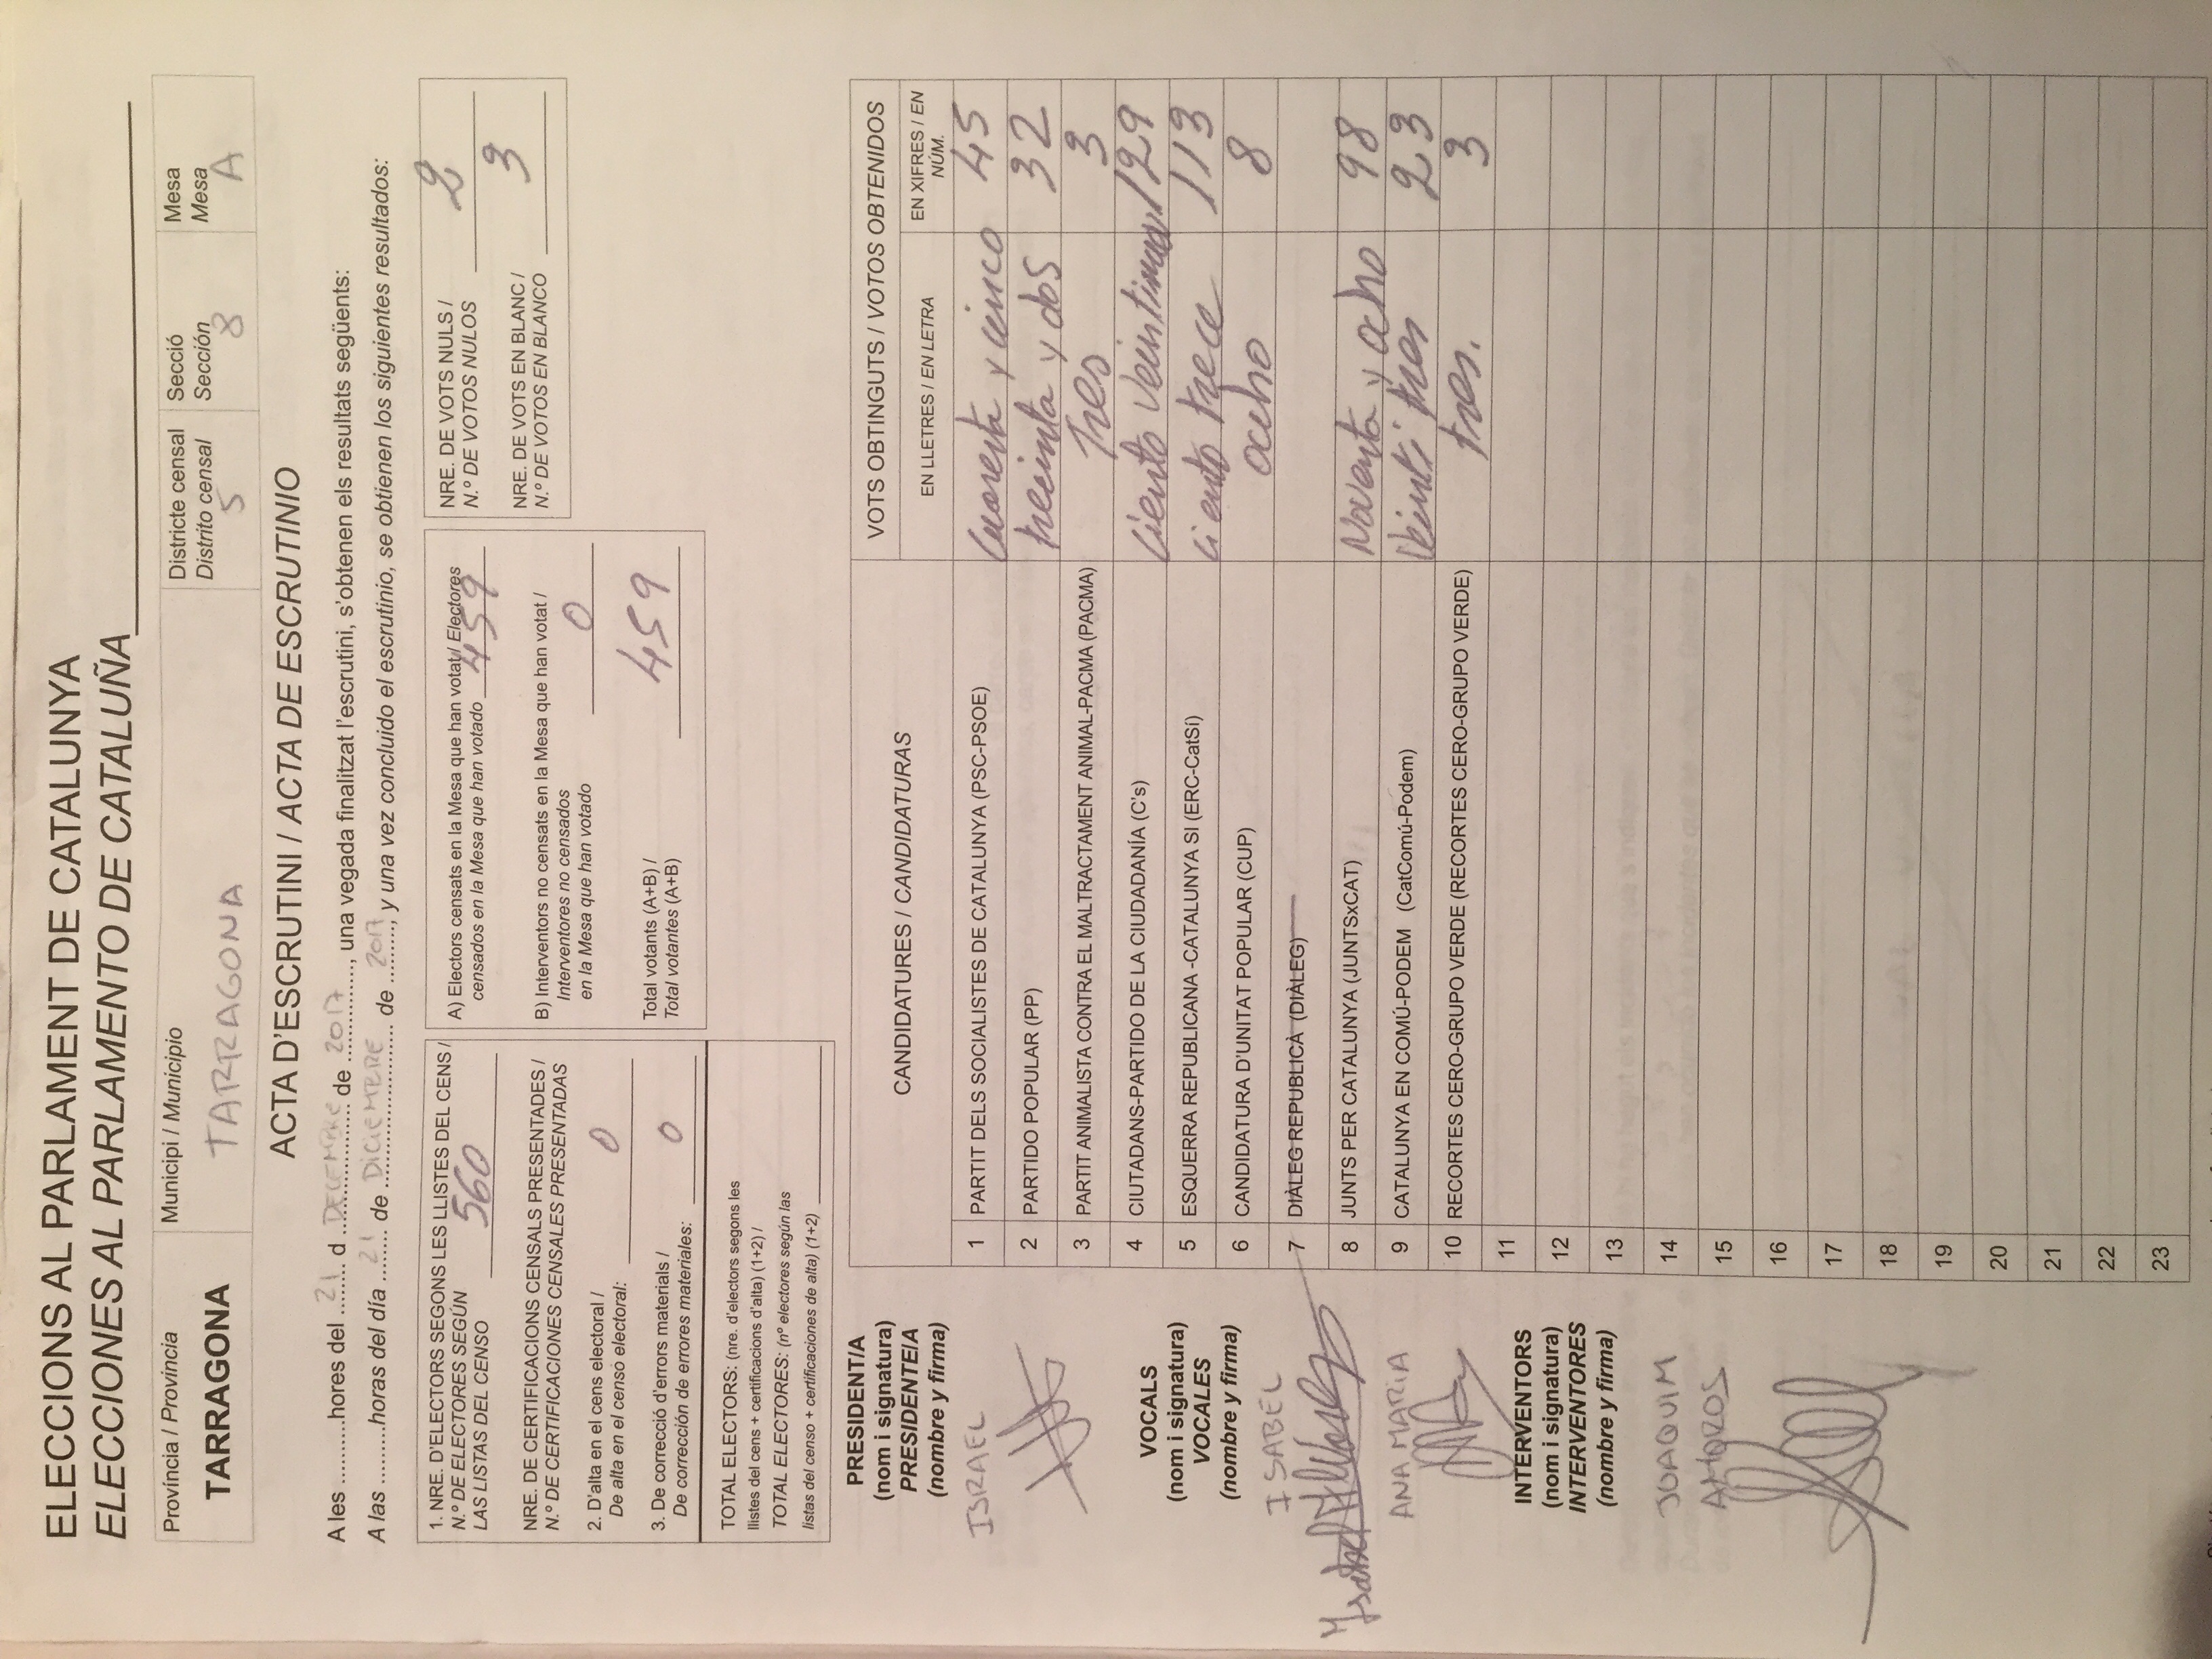 ELECCIONS AL PARLAMENT DE CATALUNYA
ELECCIONES AL PARLAMENTO DE CATALUÑA
Província / Provincia
TARRAGONA
Municipi / Municipio
TARRAGONA
Districte censal
Distrito censal
5
Secció
Sección
8
Mesa
Mesa
A
ACTA D'ESCRUTINI / ACTA DE ESCRUTINIO
A les .........hores del 21 d DECEMBRE de 2017, una vegada finalitzat l'escrutini, s'obtenen els resultats següents:
A las .........horas del día 21 de DICIEMBRE de 2017, y una vez concluido el escrutinio, se obtienen los siguientes resultados:
1. NRE. D'ELECTORS SEGONS LES LLISTES DEL CENS /
N.º DE ELECTORES SEGÚN
LAS LISTAS DEL CENSO 560
NRE. DE CERTIFICACIONS CENSALS PRESENTADES /
N.º DE CERTIFICACIONES CENSALES PRESENTADAS
2. D'alta en el cens electoral /
De alta en el censo electoral: 0
3. De correcció d'errors materials /
De corrección de errores materiales: 0
TOTAL ELECTORS: (nre. d'electors segons les
llistes del cens + certificacions d'alta) (1+2) /
TOTAL ELECTORES: (nº electores según las
listas del censo + certificaciones de alta) (1+2)
A) Electors censats en la Mesa que han votat / Electores
censados en la Mesa que han votado 459
B) Interventors no censats en la Mesa que han votat /
Interventores no censados
en la Mesa que han votado 0
Total votants (A+B) /
Total votantes (A+B) 459
NRE. DE VOTS NULS /
N.º DE VOTOS NULOS 2
NRE. DE VOTS EN BLANC /
N.º DE VOTOS EN BLANCO 3
PRESIDENT/A
(nom i signatura)
PRESIDENTE/A
(nombre y firma)
ISRAEL
VOCALS
(nom i signatura)
VOCALES
(nombre y firma)
ISABEL
Isabel
ANA MARIA
INTERVENTORS
(nom i signatura)
INTERVENTORES
(nombre y firma)
JOAQUIM
AMOROS
CANDIDATURES / CANDIDATURAS
VOTS OBTINGUTS / VOTOS OBTENIDOS
EN LLETRES / EN LETRA
EN XIFRES / EN
NÚM.
1 PARTIT DELS SOCIALISTES DE CATALUNYA (PSC-PSOE) Cuarenta y cinco 45
2 PARTIDO POPULAR (PP) treinta y dos 32
3 PARTIT ANIMALISTA CONTRA EL MALTRACTAMENT ANIMAL-PACMA (PACMA) Tres 3
4 CIUTADANS-PARTIDO DE LA CIUDADANÍA (C's) Ciento Veintinueve 129
5 ESQUERRA REPUBLICANA -CATALUNYA SI (ERC-CatSí) ciento trece 113
6 CANDIDATURA D'UNITAT POPULAR (CUP) ocho 8
7 DIÀLEG REPUBLICÀ (DIÀLEG)
8 JUNTS PER CATALUNYA (JUNTSxCAT) Noventa y ocho 98
9 CATALUNYA EN COMÚ-PODEM (CatComú-Podem) Veinti tres 23
10 RECORTES CERO-GRUPO VERDE (RECORTES CERO-GRUPO VERDE) tres. 3
11
12
13
14
15
16
17
18
19
20
21
22
23